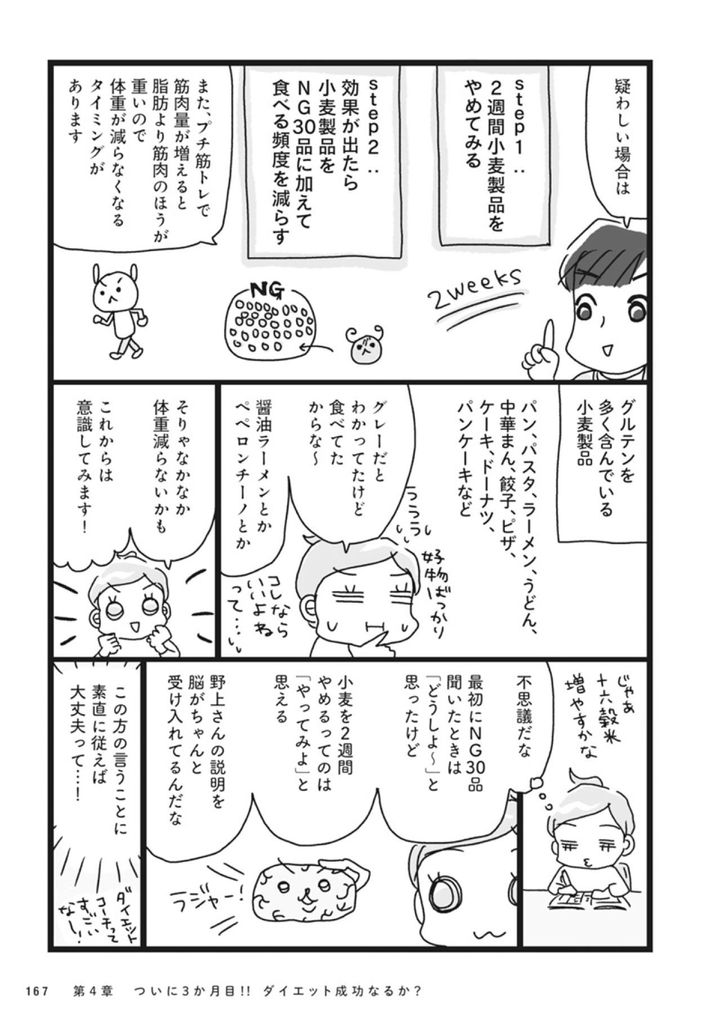 疑わしい場合は
step1：
2週間小麦製品を
やめてみる
step2：
効果が出たら
小麦製品を
NG30品に加えて
食べる頻度を減らす
また、プチ筋トレで
筋肉量が増えると
脂肪より筋肉のほうが
重いので
体重が減らなくなる
タイミングが
あります
2weeks
NG
グルテンを
多く含んでいる
小麦製品
パン、パスタ、ラーメン、うどん、
中華まん、餃子、ピザ、
ケーキ、ドーナツ、
パンケーキなど
グレーだと
わかってたけど
食べてた
からな〜
醤油ラーメンとか
ペペロンチーノとか
ううう…
好物ばっかり
コレなら
いいよね
って…
そりゃなかなか
体重減らないかも
これからは
意識してみます！
じゃあ
十六穀米
増やすかな
不思議だな
最初にNG30品
聞いたときは
「どうしよ〜」と
思ったけど
小麦を2週間
やめるってのは
「やってみよ」と
思える
野上さんの説明を
脳がちゃんと
受け入れてるんだな
ラジャー！
この方の言うことに
素直に従えば
大丈夫って…！
ダイエット
コーチって
すごい
なー！
167　第4章　ついに3か月目!! ダイエット成功なるか？